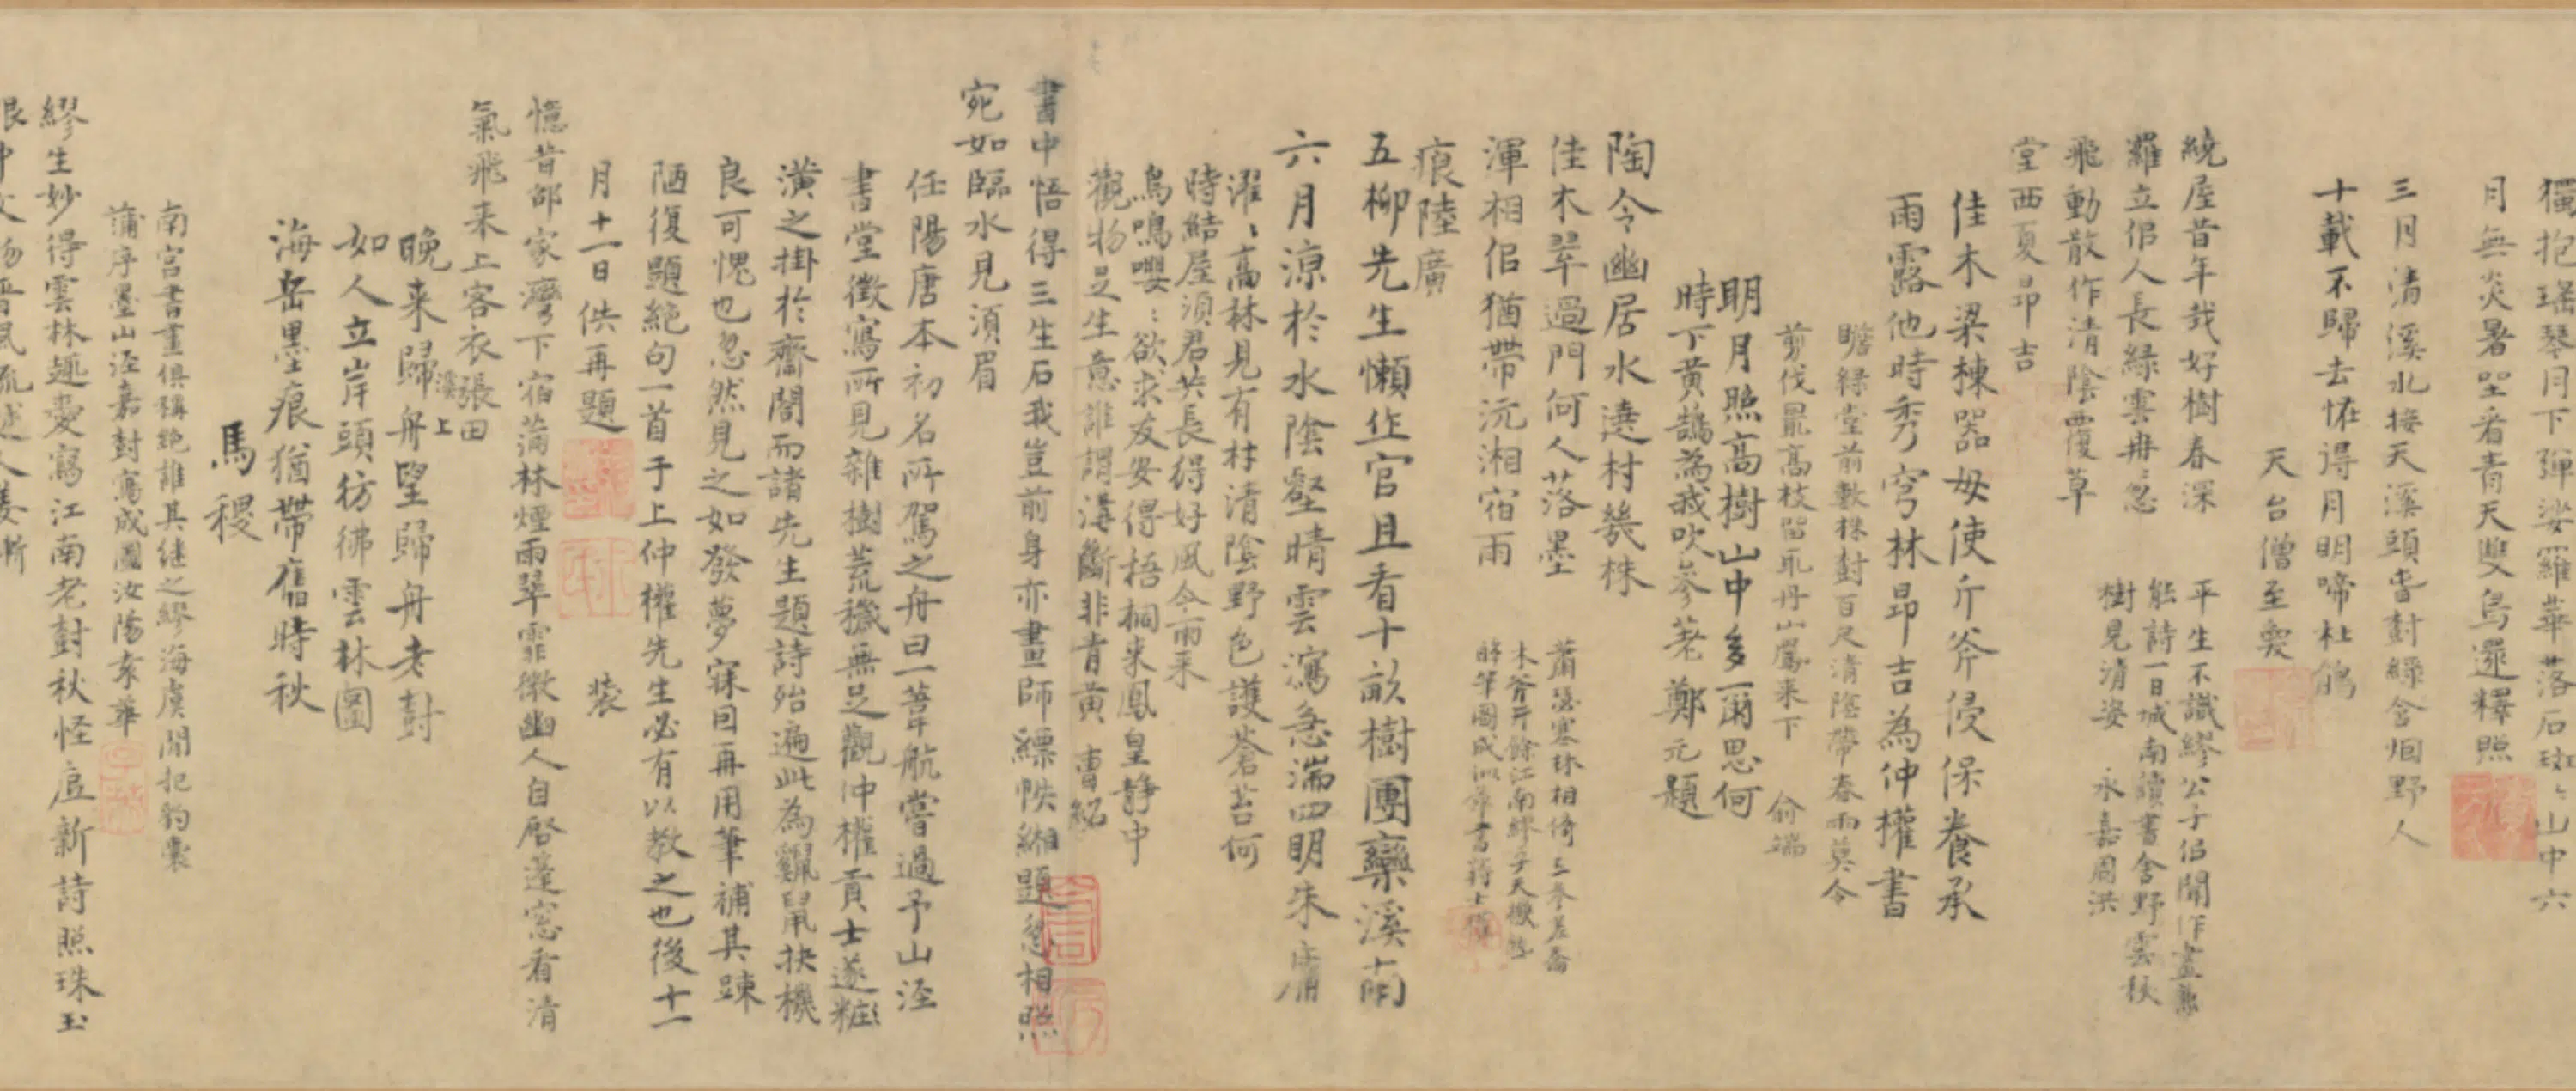 獨抱瑤琴月下彈娑羅華落石斑〻山中六
月無炎暑坐看青天雙鳥還釋照
三月清溪水接天溪頭嘗對綠
野人
十載不歸去恠得月明啼杜鵑
天台僧至奐
繞屋昔年栽好樹春深
羅立侶人長綠雲冉〻忽
飛動散作清陰覆草
堂西夏昂吉
平生不識繆公子侶聞作畫兼
能詩一日城南讀書舍野雲秋
樹見清姿 永嘉周洪
佳木梁棟器毋使斤斧侵保養承
雨露他時秀穹林昂吉為仲權書
瞻綠堂前數株對百尺清陰帶春雨莫令
剪伐罷高枝留取丹山鳳來下 俞端
明月照高樹山中多爾思何
時下黃鵠為我吹參差鄭元題
陶令幽居水遶村幾株
佳木翠過門何人落墨
渾相侶猶帶沅湘宿雨
痕陸廣
蕭瑟寒林相倚
木斧斤餘江南繆子天機
筆圖成
五柳先生懶作官且看十畝樹團欒溪南
六月涼於水陰壑晴雲瀉急湍四明朱庸
濯〻高林見有材清陰野色護蒼苔何
時結屋須君共長得好風今雨來
鳥鳴嚶〻欲求友安得梧桐來鳳皇靜中
觀物足生意誰謂溝斷非青黃 曹紹
書中悟得三生石我豈前身亦畫師縹帙緗題忽相照
宛如臨水見須眉
任陽唐本初名所駕之舟曰一葦航嘗過予山泾
書堂徵寫所見雜樹荒穢無足觀仲權貢士遂粧
潢之掛於齋閤而諸先生題詩殆遍此為鼷鼠抉機
良可愧也忽然見之如發夢寐因再用筆補其踈
陋復題絕句一首于上仲權先生必有以教之也後十一
月十一日佚再題 裝
憶昔郃家灣下宿蒲林煙雨翠霏微幽人自啓蓬窓看清
氣飛來上客衣張田
晚來歸舟望歸舟老對
溪上
如人立岸頭彷彿雲林圖
海岳墨痕猶帶舊時秋
馬稷
南宮書畫俱稱絕誰其継之繆海虞閒把豹囊
蒲序墨山泾嘉對寫成圖汝陽袁華
繆生妙得雲林趣愛寫江南老對秋怪底新詩照珠玉